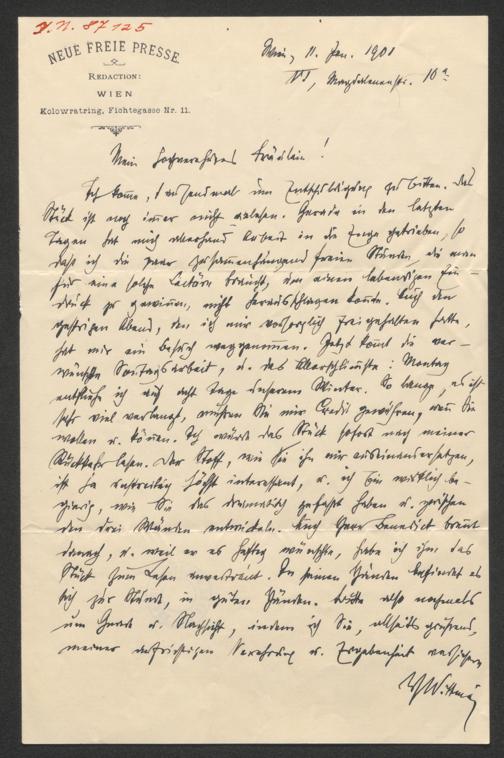 J.N. 87125
NEUE FREIE PRESSE.
REDACTION:
WIEN
Kolowratring, Fichtegasse Nr. 11.
Wien, 11. Jan. 1901
VI, Magdalenenstr. 10a
Mein hochverehrtes Fräulein!
Ich komme, tausendmal um Entschuldigung zu bitten. Das
Stück ist noch immer nicht gelesen. Gerade in den letzten
Tagen hat mich allerhand Arbeit in die Enge getrieben, so
daß ich die paar zusammenhängend freien Stunden, die man
für eine solche Lectüre braucht, um einen lebendigen Ein
druck zu gewinnen, nicht herausschlagen konnte. Auch den
gestrigen Abend, den ich mir vorsorglich freigehalten hatte,
hat mir ein Besuch weggenommen. Jetzt kommt die ver-
wünschte Sonntagsarbeit, u. das Allerschlimmste: Montag
entfliehe ich auf acht Tage unserem Winter. So lange, es ist
sehr viel verlangt, müssen Sie mir Credit gewähren, wenn Sie
wollen u. können. Ich würde das Stück sofort nach meiner
Rückkehr lesen. Der Stoff, wie Sie ihn mir auseinandersetzten,
ist ja unstreitig höchst interessant, u. ich bin wirklich be-
gierig, wie Sie das dramatisch gefaßt haben u. zwischen
den drei Wänden entwickeln. Auch Herr Benedict brennt
danach, u. weil er es heftig wünschte, habe ich ihm das
Stück zum Lesen anvertraut. In seinen Händen befindet es
sich zur Stunde, in guten Händen. Bitte also nochmals
um Gnade u. Nachsicht, indem ich Sie, allseits grüßend,
meiner aufrichtigen Verehrung u. Ergebenheit versichere
Wittmann